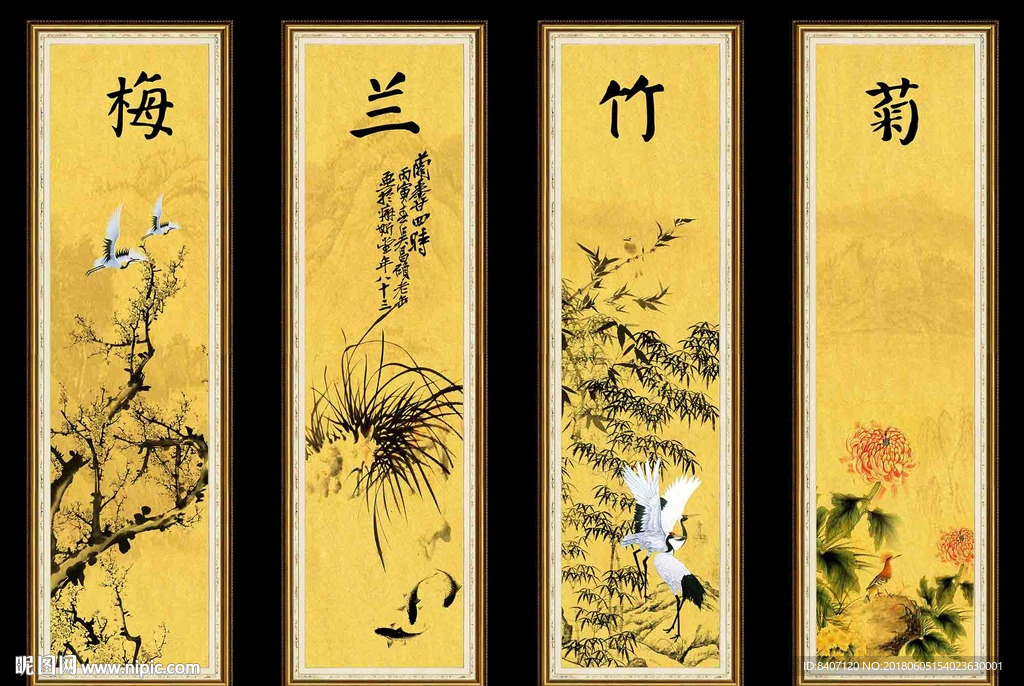 梅
兰
竹
菊
蘭香四時
丙寅春吳昌碩老缶
年八十三
昵图网 www.nipic.com
ID:8407120 NO:20180605154023630001